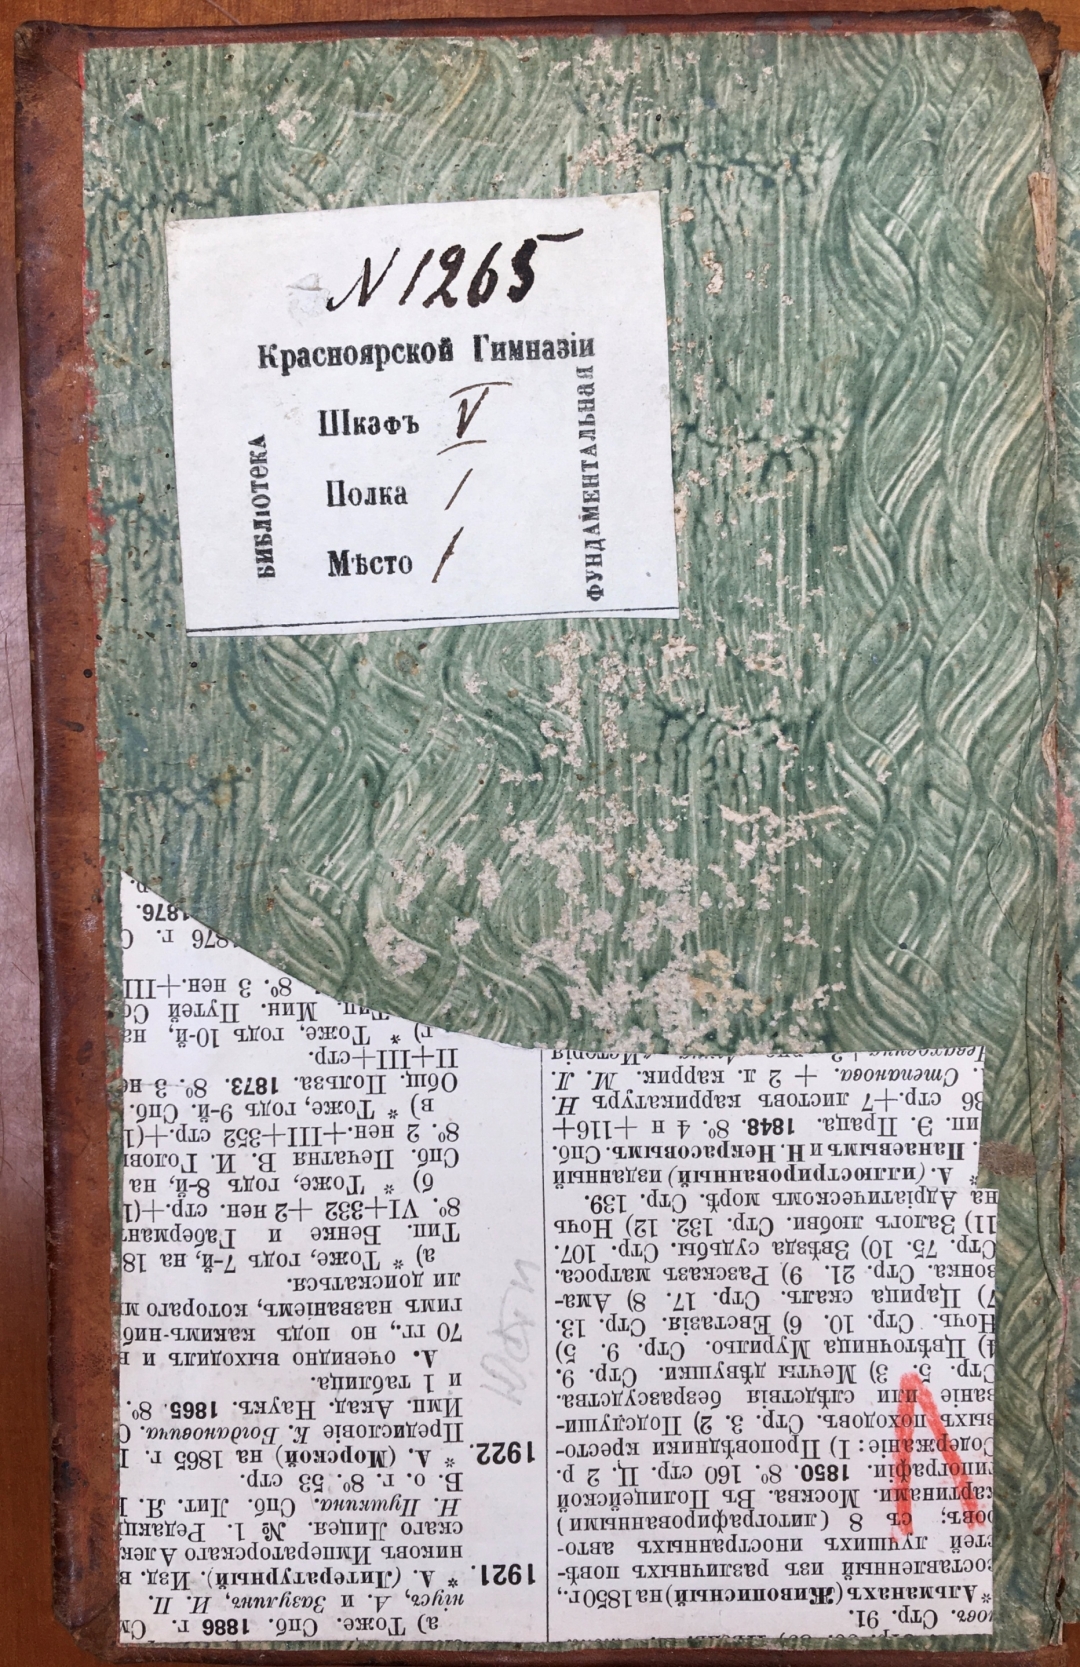 N 1265
Красноярской Гимназіи
Шкафъ V
Полка 1
Мѣсто 1
БИБЛІОТЕКА
ФУНДАМЕНТАЛЬНАЯ
Стр. 91.
*Альманахъ (Живописный) на 1850 г.,
составленный изъ различныхъ повѣ-
стей лучшихъ иностранныхъ авто-
ровъ; съ 8 (литографированными)
картинами. Москва. Въ Полицейской
типографіи. 1850. 8⁰. 160 стр. Ц. 2 р.
Содержаніе: 1) Проповѣдники кресто-
выхъ походовъ. Стр. 3. 2) Подслуши-
ваніе или слѣдствія безразсудства.
Стр. 5. 3) Мечты дѣвушки. Стр. 9.
4) Цвѣточница Мурильо. Стр. 9. 5)
Ночь. Стр. 10. 6) Евстазія. Стр. 13.
7) Царица скалъ. Стр. 17. 8) Ама-
зонка. Стр. 21. 9) Разсказъ матроса.
Стр. 75. 10) Звѣзда судьбы. Стр. 107.
11) Залогъ любви. Стр. 132. 12) Ночь
на Адріатическомъ морѣ. Стр. 139.
* А. (иллюстрированный) изданный
Панаевымъ и Н. Некрасовымъ. Спб.
ип. Э. Праца. 1848. 8⁰. 4 н +116+
36 стр.+7 листовъ каррикатуръ Н.
Степанова. + 2 л. каррик. М. Л.
а) Тоже. Спб. 1886 г. См
ніусъ, А. и Зазулинъ, И. П.
1921. * А. (Литературный). Изд. в
никовъ Императорскаго Алек
скаго Лицея. № 1. Редакц
Н. Пушкина. Спб. Лит. Я.
Б. о. г. 8⁰. 53 стр.
1922. * А. (Морской) на 1865 г.
Предисловіе К. Богдановича. С
Имп. Акад. Наукъ. 1865. 8⁰.
и 1 таблица.
А. очевидно выходилъ и
70 гг., но подъ какимъ-ниб
гимъ названіемъ, котораго м
ли доискаться.
а) * Тоже, годъ 7-й, на 18
Тип. Венке и Габерман
8⁰. VI+332 +2 нен. стр.+(1
б) * Тоже, годъ 8-й, на
Спб. Печатня В. И. Голови
8⁰. 2 нен.+III+352 стр.+(1
в) * Тоже, годъ 9-й. Спб.
Общ. Польза. 1873. 8⁰. 3 не
II+III+стр.
г) * Тоже, годъ 10-й, на
Тип. Мин. Путей Со
8⁰. 3 нен.+III
1876 г. С
1876.